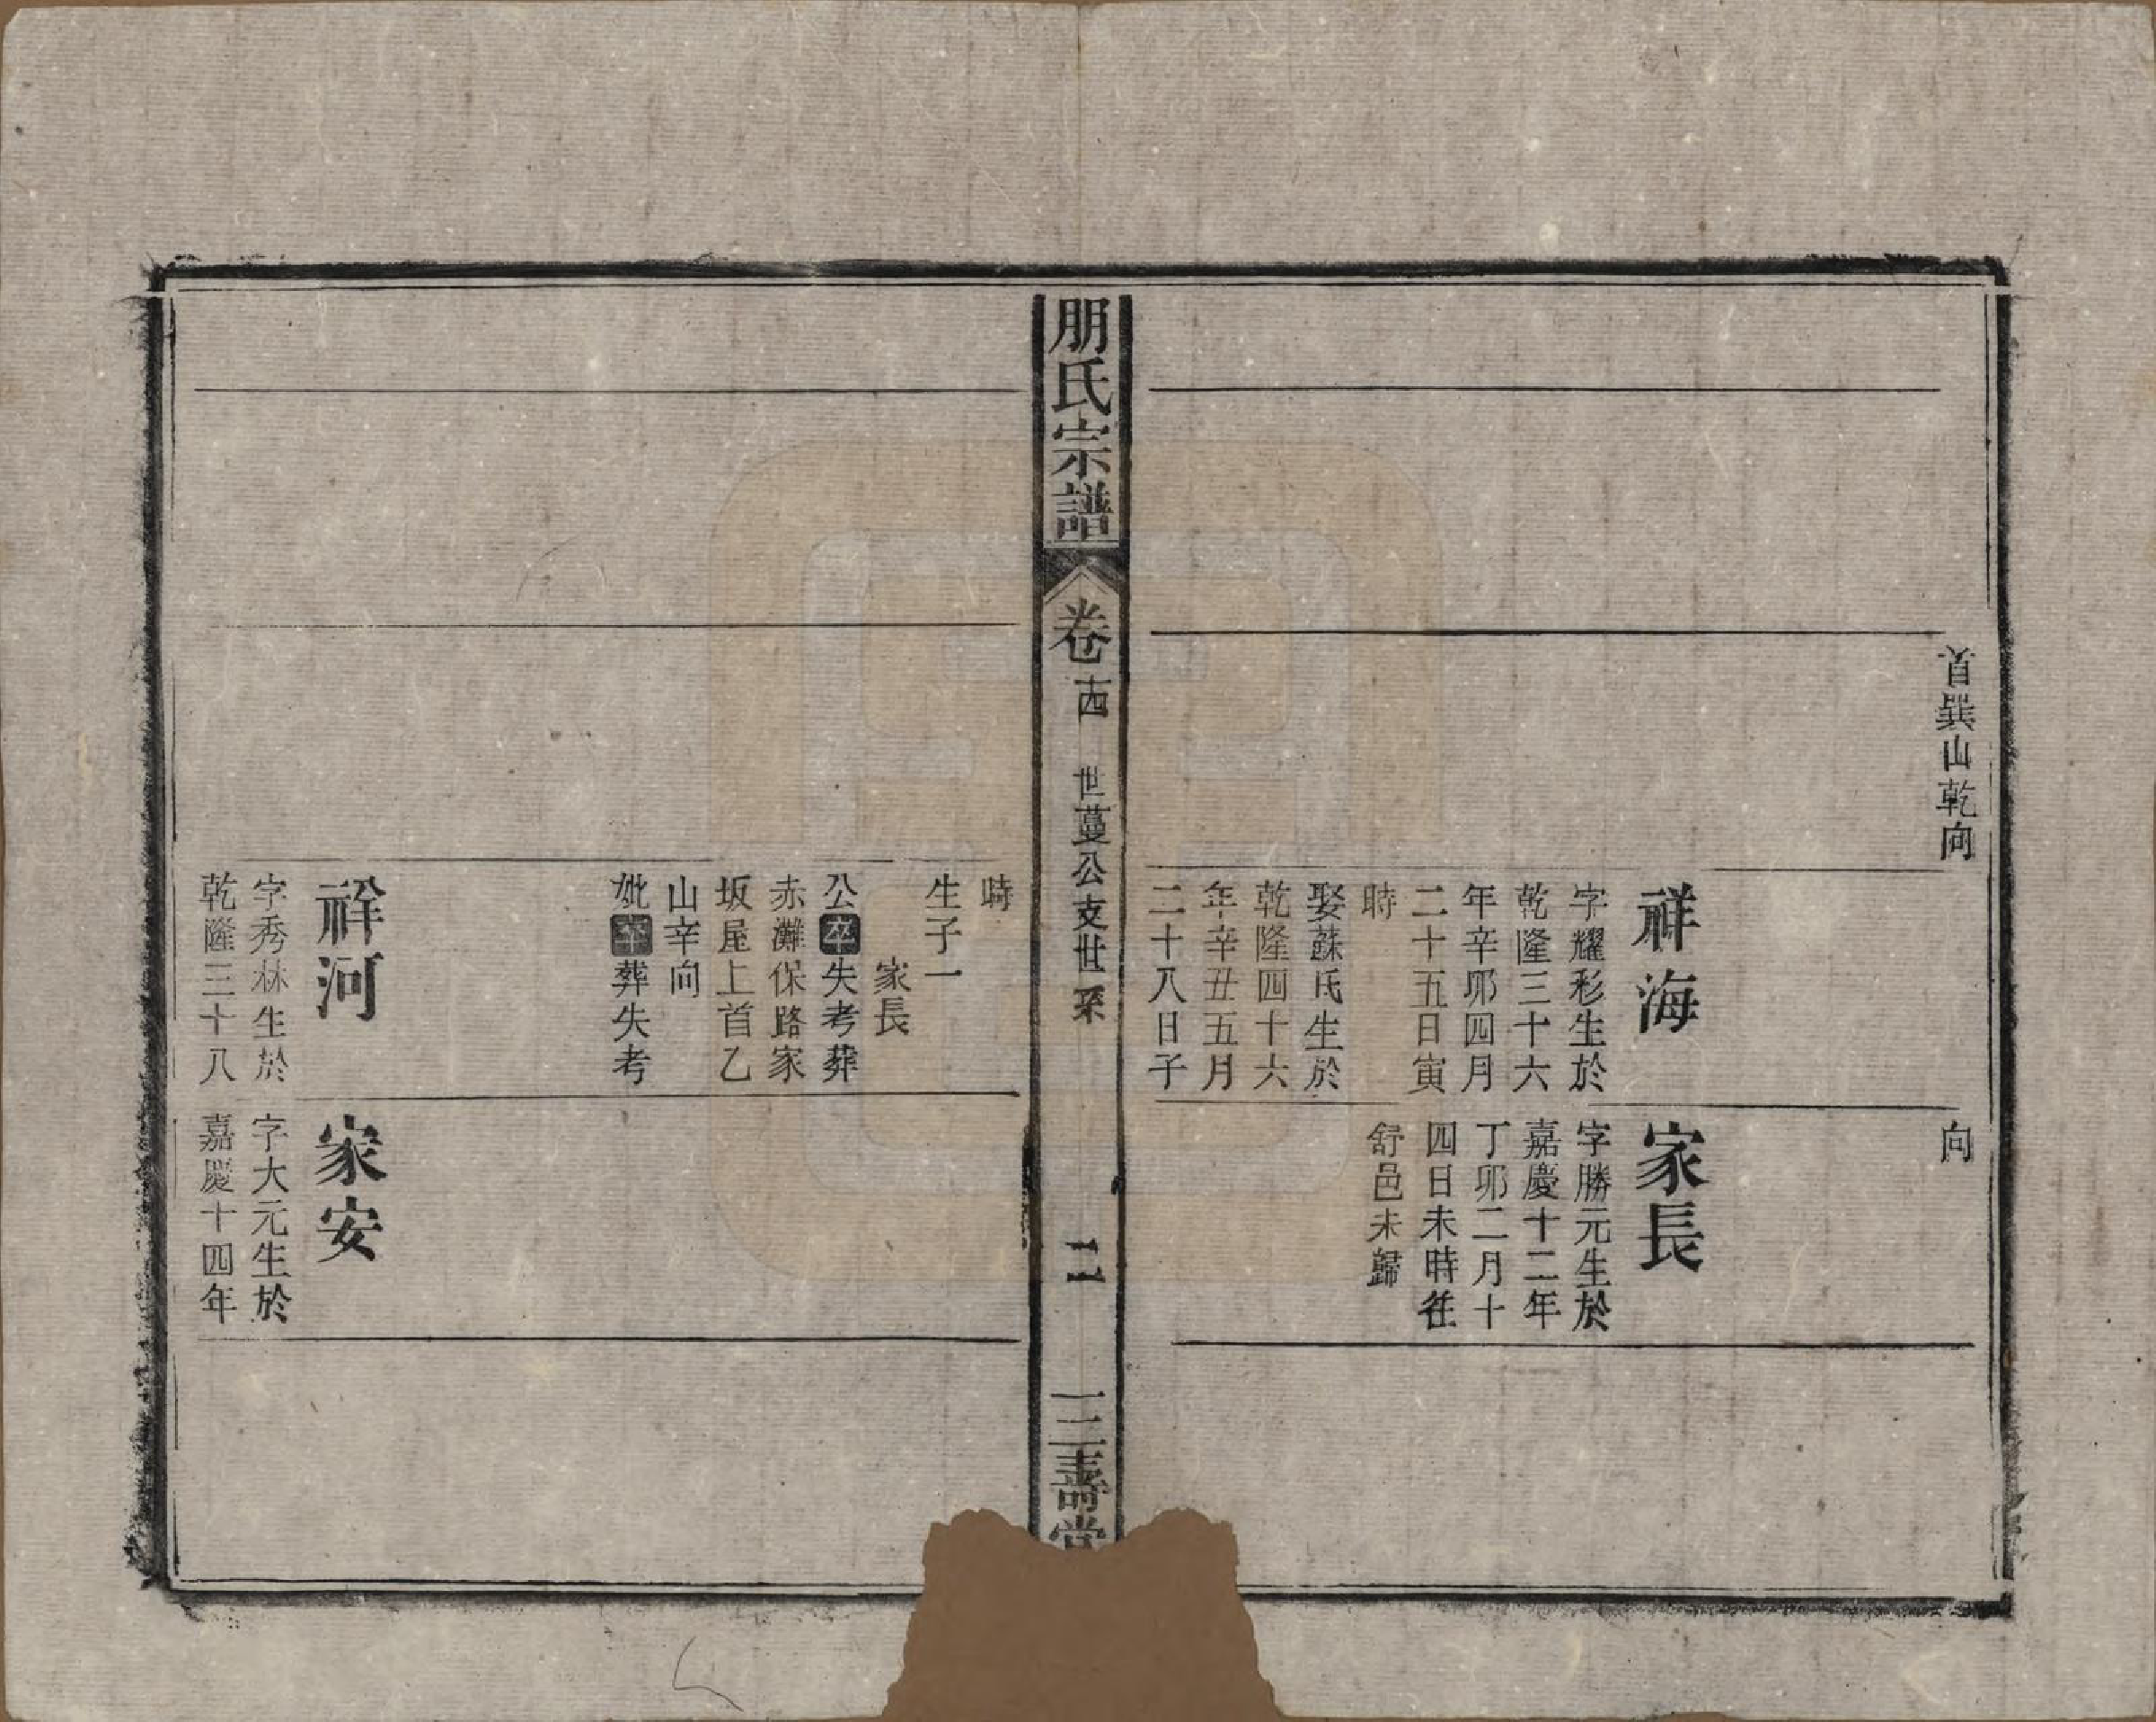 首巽山乾向
祥海
字耀彩生於
乾隆三十六
年辛夘四月
二十五日寅
時
娶蘇氏生於
乾隆四十六
年辛丑五月
二十八日子
向
家長
字勝元生於
嘉慶十二年
丁夘二月十
四日未時往
舒邑未歸
朋氏宗譜
卷十四
世蔓公支世系
二
三壽堂
時
生子一
家長
公卒失考葬
赤灘保路家
坂屋上首乙
山辛向
妣卒葬失考
祥河
字秀林生於
乾隆三十八
家安
字大元生於
嘉慶十四年